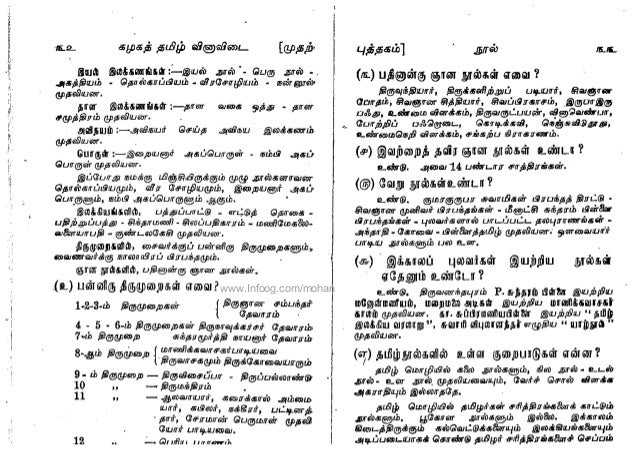 ௩௨ கழகத் தமிழ் வினாவிடை [முதற்
இயல் இலக்கணங்கள் :—இயல் நூல் - பெரு நூல் -
அகத்தியம் - தொல்காப்பியம் - வீரசோழியம் - நன்னூல்
முதலியன.
தாள இலக்கணங்கள் :—தாள வகை ஒத்து - தாள
சமுத்திரம் முதலியன.
அவிநயம் :—அவிநயர் செய்த அவிநய இலக்கணம்
முதலியன.
பொருள் :—இறையனார் அகப்பொருள் - நம்பி அகப்
பொருள் முதலியன.
இப்போது நமக்கு மிஞ்சியிருக்கும் முழு நூல்களாவன
தொல்காப்பியமும், வீர சோழியமும், இறையனார் அகப்
பொருளும், நம்பி அகப்பொருளும் ஆகும்.
இலக்கியங்களில், பத்துப்பாட்டு - எட்டுத் தொகை -
பதிற்றுப்பத்து - சிந்தாமணி - சிலப்பதிகாரம் - மணிமேகலை-
வளையாபதி - குண்டலகேசி முதலியன.
திருமுறைகளில், சைவர்க்குப் பன்னிரு திருமுறைகளும்,
வைணவர்க்கு நாலாயிரப் பிரபந்தமும்.
ஞான நூல்களில், பதினான்கு ஞான நூல்கள்.
(௨) பன்னிரு திருமுறைகள் எவை?
1-2-3-ம் திருமுறைகள் { திருஞான சம்பந்தர்
தேவாரம்
4 - 5 - 6-ம் திருமுறைகள் திருநாவுக்கரசர் தேவாரம்
7-ம் திருமுறை சுந்தரமூர்த்தி நாயனார் தேவாரம்
8-ஆம் திருமுறை { மாணிக்கவாசகர்பாடியவை
திருவாசகமும் திருக்கோவையாரும்
9 - ம் திருமுறை — திருவிசைப்பா - திருப்பல்லாண்டு
10 ,, — திருமந்திரம்
11 ,, — ஆலவாயார், காரைக்கால் அம்மை
யார், கபிலர், நக்கீரர், பட்டினத்
தார், சேரமான் பெருமாள் முதலி
யோர் பாடியவை.
12 ,, — பெரிய புராணம்
புத்தகம்] நூல் ௩௩
(௩) பதினான்கு ஞான நூல்கள் எவை?
திருவுந்தியார், திருக்களிற்றுப் படியார், சிவஞான
போதம், சிவஞான சித்தியார், சிவப்பிரகாசம், இருபாஇரு
பஃது, உண்மை விளக்கம், திருவருட்பயன், வினாவெண்பா,
போற்றிப் பஃறொடை, கொடிக்கவி, நெஞ்சுவிடுதூது,
உண்மைநெறி விளக்கம், சங்கற்ப நிராகரணம்.
(௪) இவற்றைத் தவிர ஞான நூல்கள் உண்டா?
உண்டு. அவை 14 பண்டார சாத்திரங்கள்.
(௫) வேறு நூல்கள்உண்டா?
உண்டு. குமரகுருபர சுவாமிகள் பிரபந்தத் திரட்டு -
சிவஞான முனிவர் பிரபந்தங்கள் - மீனாட்சி சுந்தரம் பிள்ளை
பிரபந்தங்கள் - புலவர்களாற் பாடப்பட்ட தலபுராணங்கள் -
அந்தாதி - கோவை - பிள்ளைத்தமிழ் முதலியன. ஔவையார்
பாடிய நூல்களும் பல உள.
(௬) இக்காலப் புலவர்கள் இயற்றிய நூல்கள்
ஏதேனும் உண்டோ?
உண்டு. திருவனந்தபுரம் P. சுந்தரம் பிள்ளை இயற்றிய
மனோன்மணியம், மறைமலை அடிகள் இயற்றிய மாணிக்கவாசகர்
காலம் முதலியன. கா. சுப்பிரமணியபிள்ளை இயற்றிய “ தமிழ்
இலக்கிய வரலாறு ”, சுவாமி விபுலாநந்தர் எழுதிய “ யாழ்நூல் ”
முதலியன.
(௭) தமிழ்நூல்களில் உள்ள குறைபாடுகள் என்ன?
தமிழ் மொழியில் கலை நூல்களும், நில நூல் - உடல்
நூல் - உள நூல் முதலியவையும், வேர்ச் சொல் விளக்க
அகராதியும் இல்லாததே.
தமிழ் மொழியில் தமிழர்கள் சரித்திரங்களைக் காட்டும்
நூல்களும், பூகோள நூல்களும் இல்லை. இக்காலம்
கிடைத்திருக்கும் கல்வெட்டுக்களையும் இலக்கியங்களையும்
அடிப்படையாகக் கொண்டு தமிழர் சரித்திரங்களைச் செப்பம்
www.Infoog.com/mohan